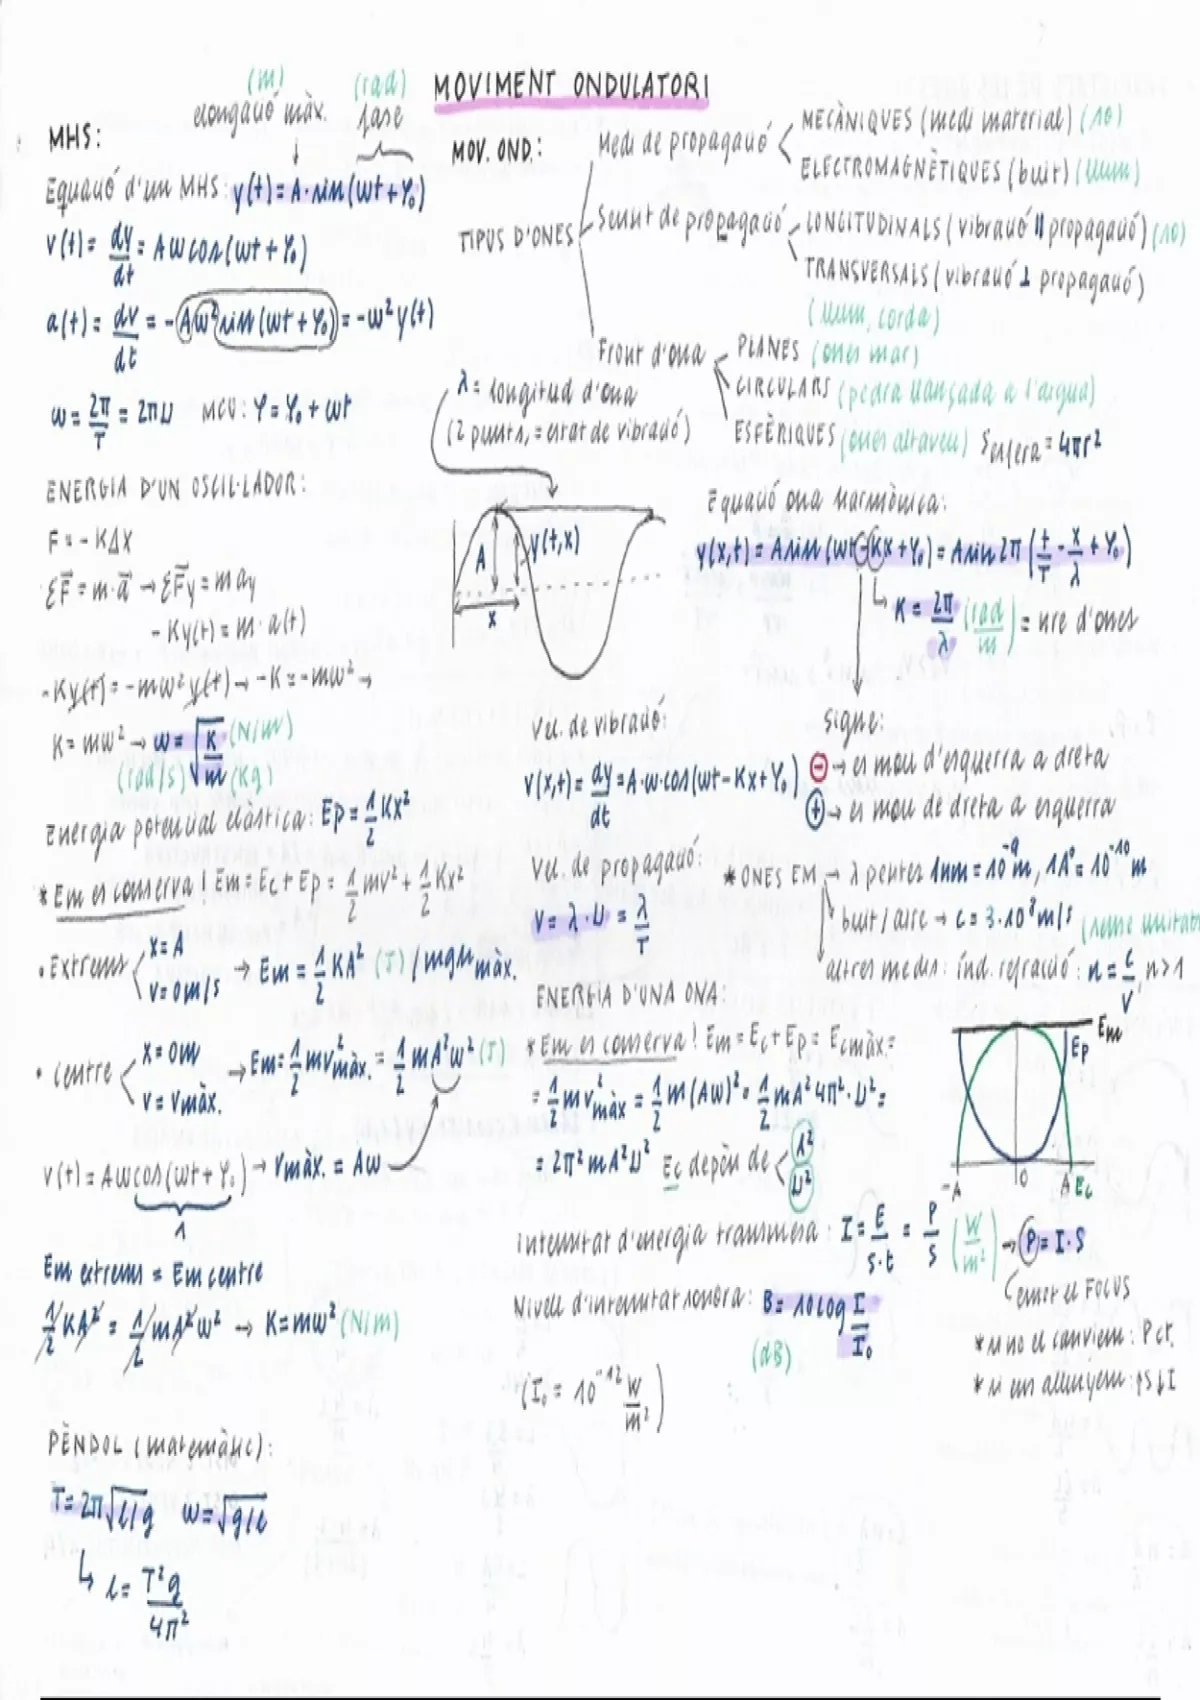 MOVIMENT ONDULATORI
(m) (rad)
elongació màx. fase
MHS:
Equació d'un MHS: y(t) = A·sin(ωt+φ₀)
v(t) = dy/dt = Aω cos(ωt+φ₀)
a(t) = dv/dt = -Aω² sin(ωt+φ₀) = -ω² y(t)
ω = 2π/T = 2πν MCU: φ = φ₀ + ωt
ENERGIA D'UN OSCIL·LADOR:
F = -KΔX
ΣF⃗ = m·a⃗ → ΣF⃗y = m ay
-Ky(t) = m·a(t)
-Ky(t) = -mω² y(t) → -K = -mω² →
K = mω² → ω = √(K/m) (N/m)
(rad/s) (kg)
Energia potencial elàstica: Ep = 1/2 Kx²
* Em es conserva! Em = Ec + Ep = 1/2 mv² + 1/2 Kx²
• Extrems x = A
v = 0 m/s
→ Em = 1/2 KA² (J) / màx.
• centre x = 0m
v = vmàx.
→ Em = 1/2 mv²màx. = 1/2 mA²ω² (J)
v(t) = Aω cos(ωt+φ₀) → vmàx. = Aω
1
Em extrems = Em centre
1/2 KA² = 1/2 mA²ω² → K = mω² (N/m)
PÈNDOL (matemàtic):
T = 2π√(l/g) ω = √(g/l)
↳ l = T²g/4π²
MOV. OND.:
TIPUS D'ONES
Medi de propagació
MECÀNIQUES (medi material) (so)
ELECTROMAGNÈTIQUES (buit) (llum)
Sentit de propagació
LONGITUDINALS (vibració || propagació) (so)
TRANSVERSALS (vibració ⊥ propagació)
(llum, corda)
Front d'ona
PLANES (ones mar)
CIRCULARS (pedra llançada a l'aigua)
ESFÈRIQUES (ones altaveu) Sesfera = 4πr²
λ = longitud d'ona
(2 punts, = estat de vibració)
A y(t,x)
x
Equació ona harmònica:
y(x,t) = A sin(ωt-Kx+φ₀) = A sin 2π (t/T - x/λ + φ₀)
↳ K = 2π/λ (rad/m) = nre d'ones
Signe:
⊖ → es mou d'esquerra a dreta
⊕ → es mou de dreta a esquerra
Vel. de vibració:
v(x,t) = dy/dt = A·ω·cos(ωt-Kx+φ₀)
Vel. de propagació:
v = λ·ν = λ/T
* ONES EM → λ petites 1nm = 10⁻⁹m, 1Å = 10⁻¹⁰m
buit/aire → c = 3·10⁸ m/s
altres medis: índ. refracció: n = c/v, n>1
ENERGIA D'UNA ONA:
* Em es conserva! Em = Ec + Ep = Ecmàx. =
= 1/2 mv²màx = 1/2 m(Aω)² = 1/2 mA² 4π²·ν² =
= 2π² mA²ν² Ec depèn de A²
ν²
Em
Ep
-A 0 A Ec
Intensitat d'energia transmesa: I = E/s·t = P/s (W/m²) → P = I·S
emet el FOCUS
* si no el canviem: P ct.
* si ens allunyem: ↑S↓I
Nivell d'intensitat sonora: B = 10 log I/I₀
(dB)
(I₀ = 10⁻¹² W/m²)